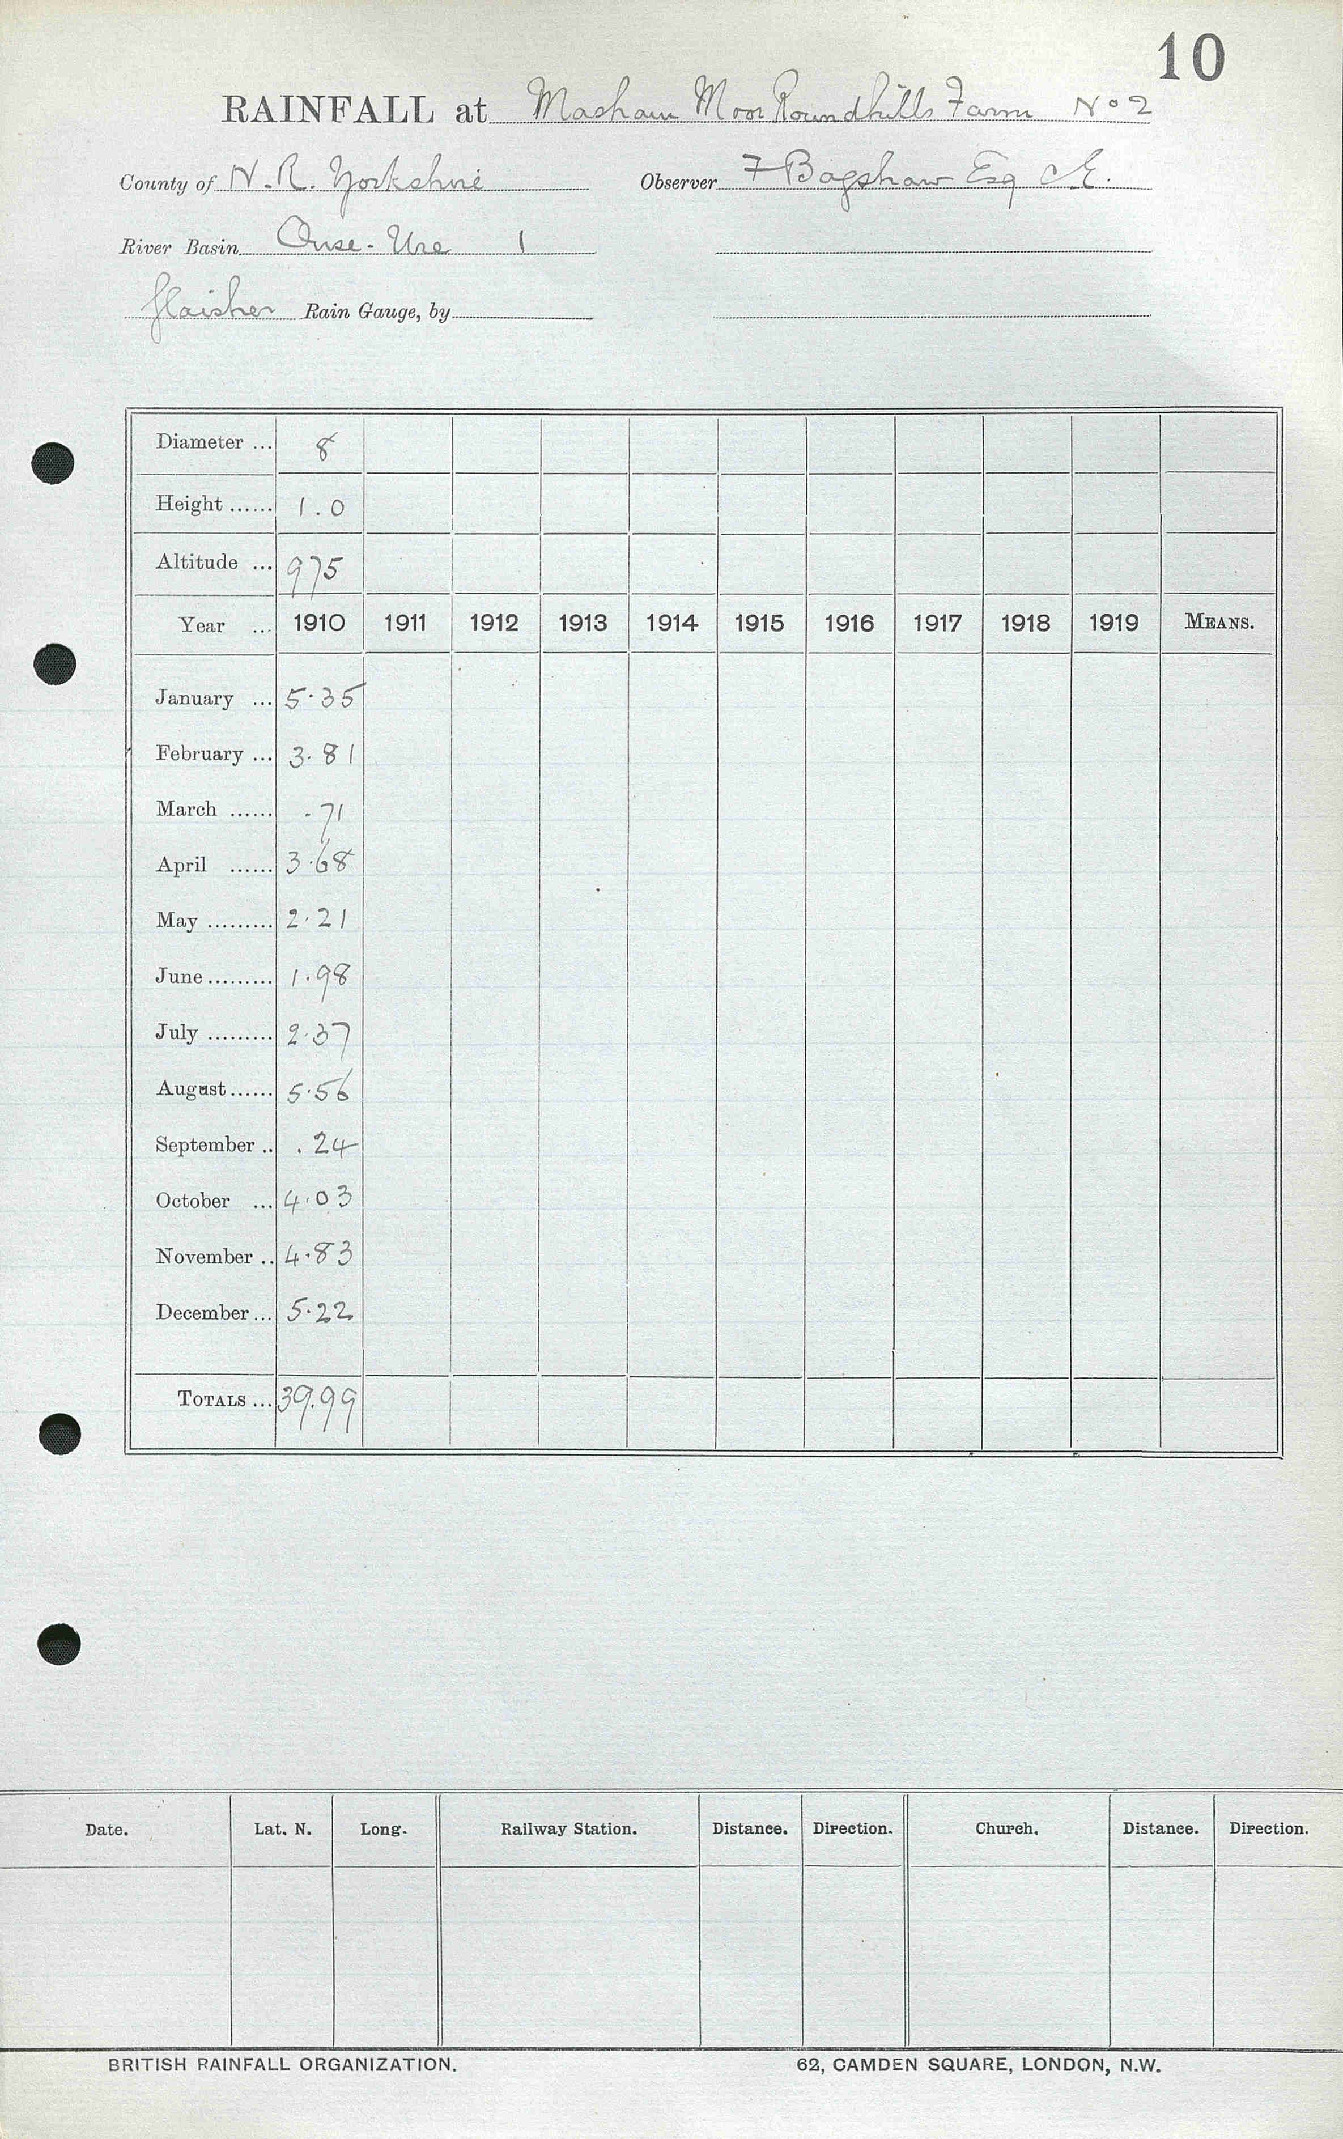 10
RAINFALL at Masham Moor Roundhills Farm No 2
County of N.R. Yorkshire Observer F Bagshaw Esq C.E.
River Basin Ouse-Ure 1
Glaisher Rain Gauge, by
Diameter ... 8
Height ...... 1.0
Altitude ... 975
Year ... 1910 1911 1912 1913 1914 1915 1916 1917 1918 1919 MEANS.
January ... 5.35
February ... 3.81
March ...... .71
April ...... 3.68
May ......... 2.21
June ......... 1.98
July ......... 2.37
August ...... 5.56
September .. .24
October ... 4.03
November .. 4.83
December ... 5.22
TOTALS ... 39.99
Date. Lat. N. Long. Railway Station. Distance. Direction. Church. Distance. Direction.
BRITISH RAINFALL ORGANIZATION. 62, CAMDEN SQUARE, LONDON, N.W.